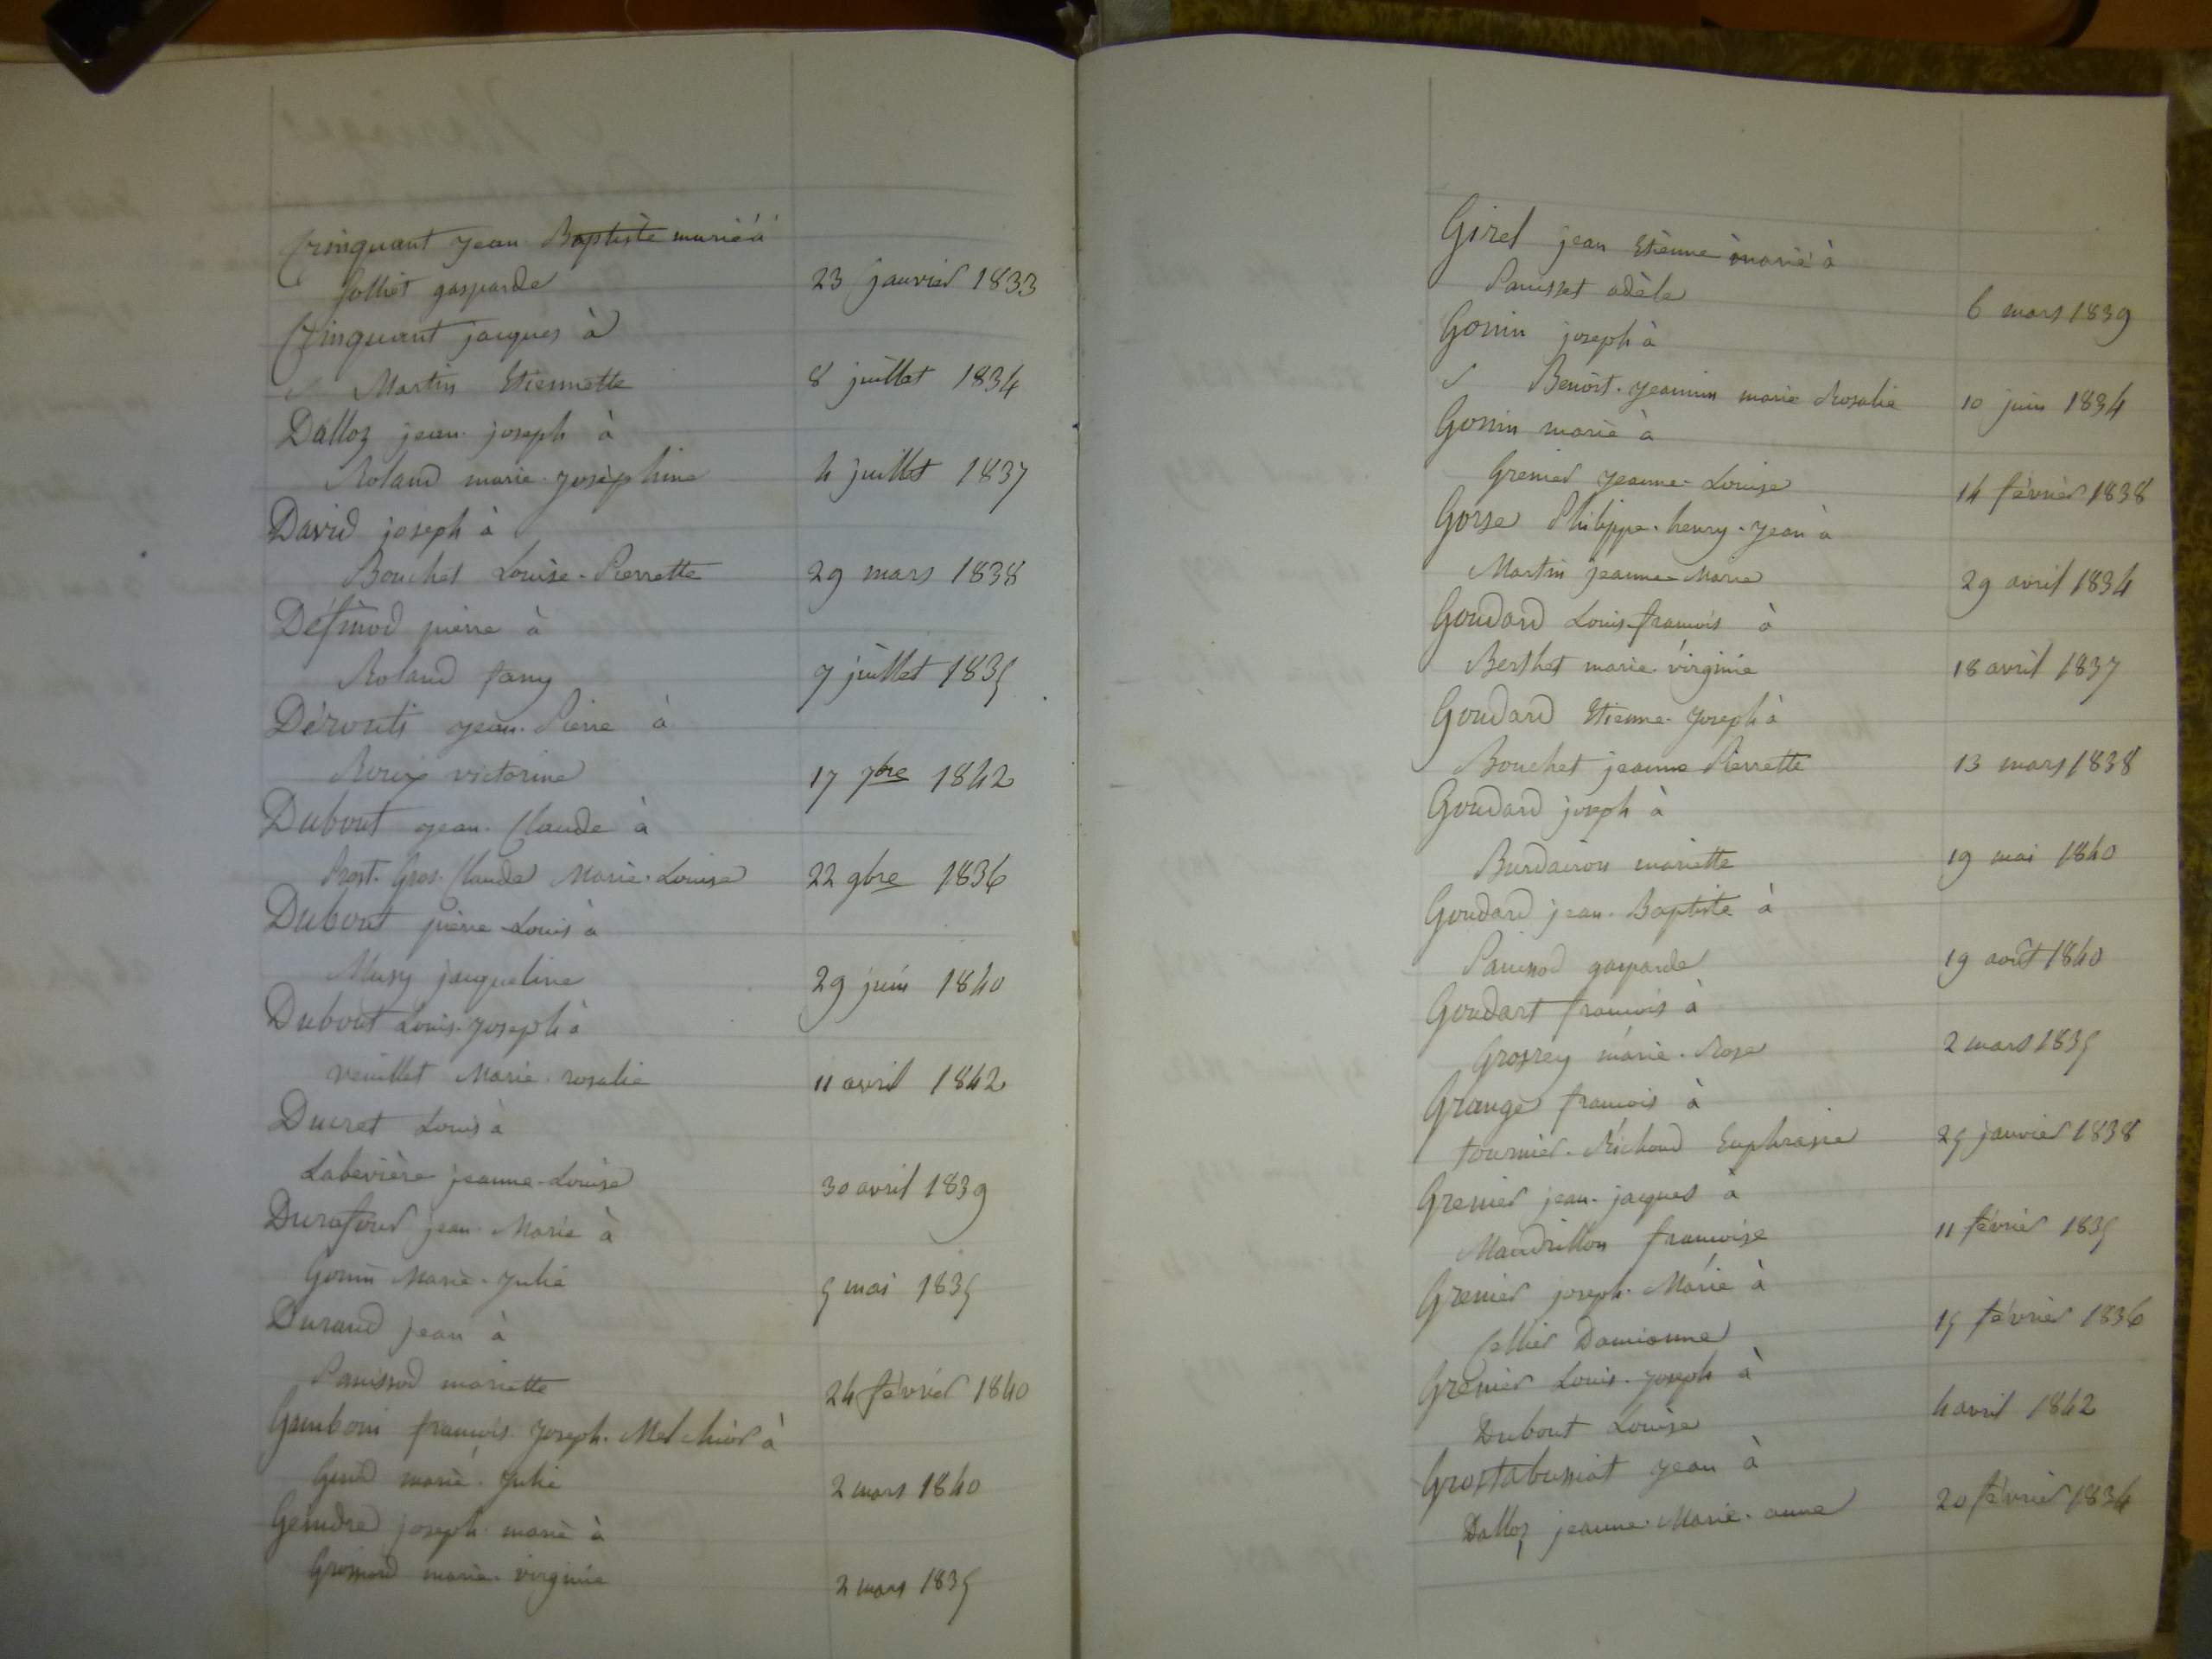 Crinquant Jean Baptiste marié à
Jolliet gasparde 23 janvier 1833
Crinquant jacques à
Martin Etiennette 8 juillet 1834
Dalloz jean joseph à
Roland marie josephine 4 juillet 1837
David joseph à
Bouchet Louise-Pierrette 29 mars 1838
Définod pierre à
Roland fany 7 juillet 1835
Dérouts Jean-Pierre à
Roux victorine 17 7bre 1842
Dubout Jean-Claude à
Prost-Gros-Claude Marie-Louise 22 9bre 1836
Dubout pierre Louis à
Musy jacqueline 29 juin 1840
Dubout Louis-Joseph à
veuillet Marie rosalie 11 avril 1842
Ducret Louis à
Labevière jeanne-Louise 30 avril 1839
Durafour jean Marie à
Gonin Marie-Julie 5 mai 1835
Durand jean à
Panissod mariette 24 février 1840
Gamboni francois-Joseph-Melchior à
marie-Julie 2 mars 1840
Geindre joseph marie à
marie-virginie 2 mars 1835
Girel jean Etienne marié à
Panisset adèle 6 mars 1839
Gonin joseph à
Benoit-Jeannin marie Rosalie 10 juin 1834
Gonin marie à
Grenier Jeanne-Louise 14 février 1838
Gorse Philippe-henry-Jean à
Martin jeanne-Marie 29 avril 1834
Goudard Louis-francois à
Berthet marie virginie 18 avril 1837
Goudard Etienne-Joseph à
Bouchet jeanne Pierrette 13 mars 1838
Goudard joseph à
Burdairon mariette 19 mai 1840
Goudard jean-Baptiste à
Panissod gasparde 19 août 1840
Goudart francois à
Grosrey marie-Rose 2 mars 1835
Grange francois à
tournier-Richoud Euphrasie 25 janvier 1838
Grenier jean-jacques à
Maudrillon francoise 11 février 1835
Grenier joseph-Marie à
Cellier Damienne 15 février 1836
Grenier Louis-Joseph à
Dubout Louise 4 avril 1842
Grostabussiat Jean à
Dalloz jeanne-Marie-anne 20 février 1834